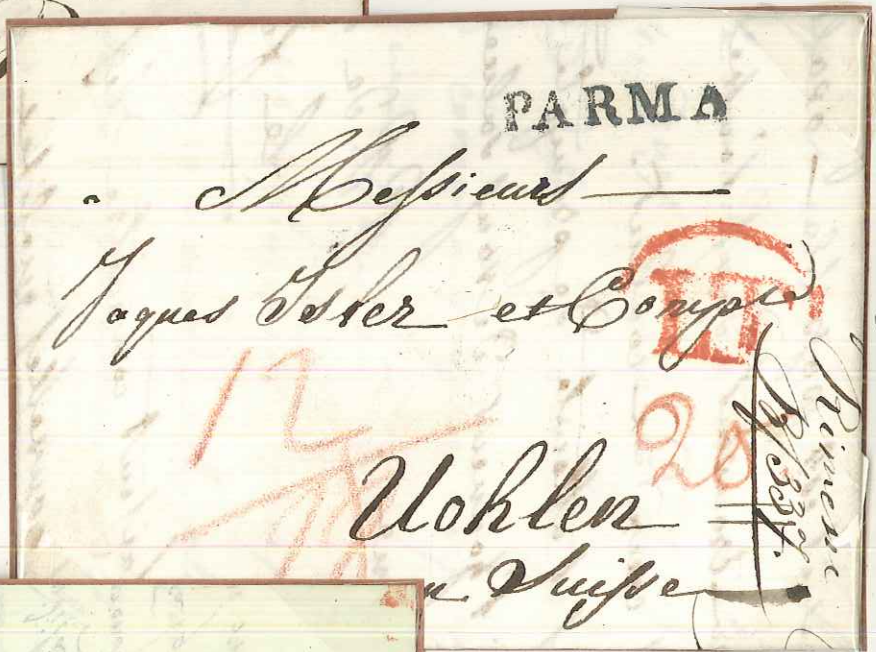 PARMA
Messieurs
Jaques Isler et Compie
LT
12
20
Uohlen
n Suisse